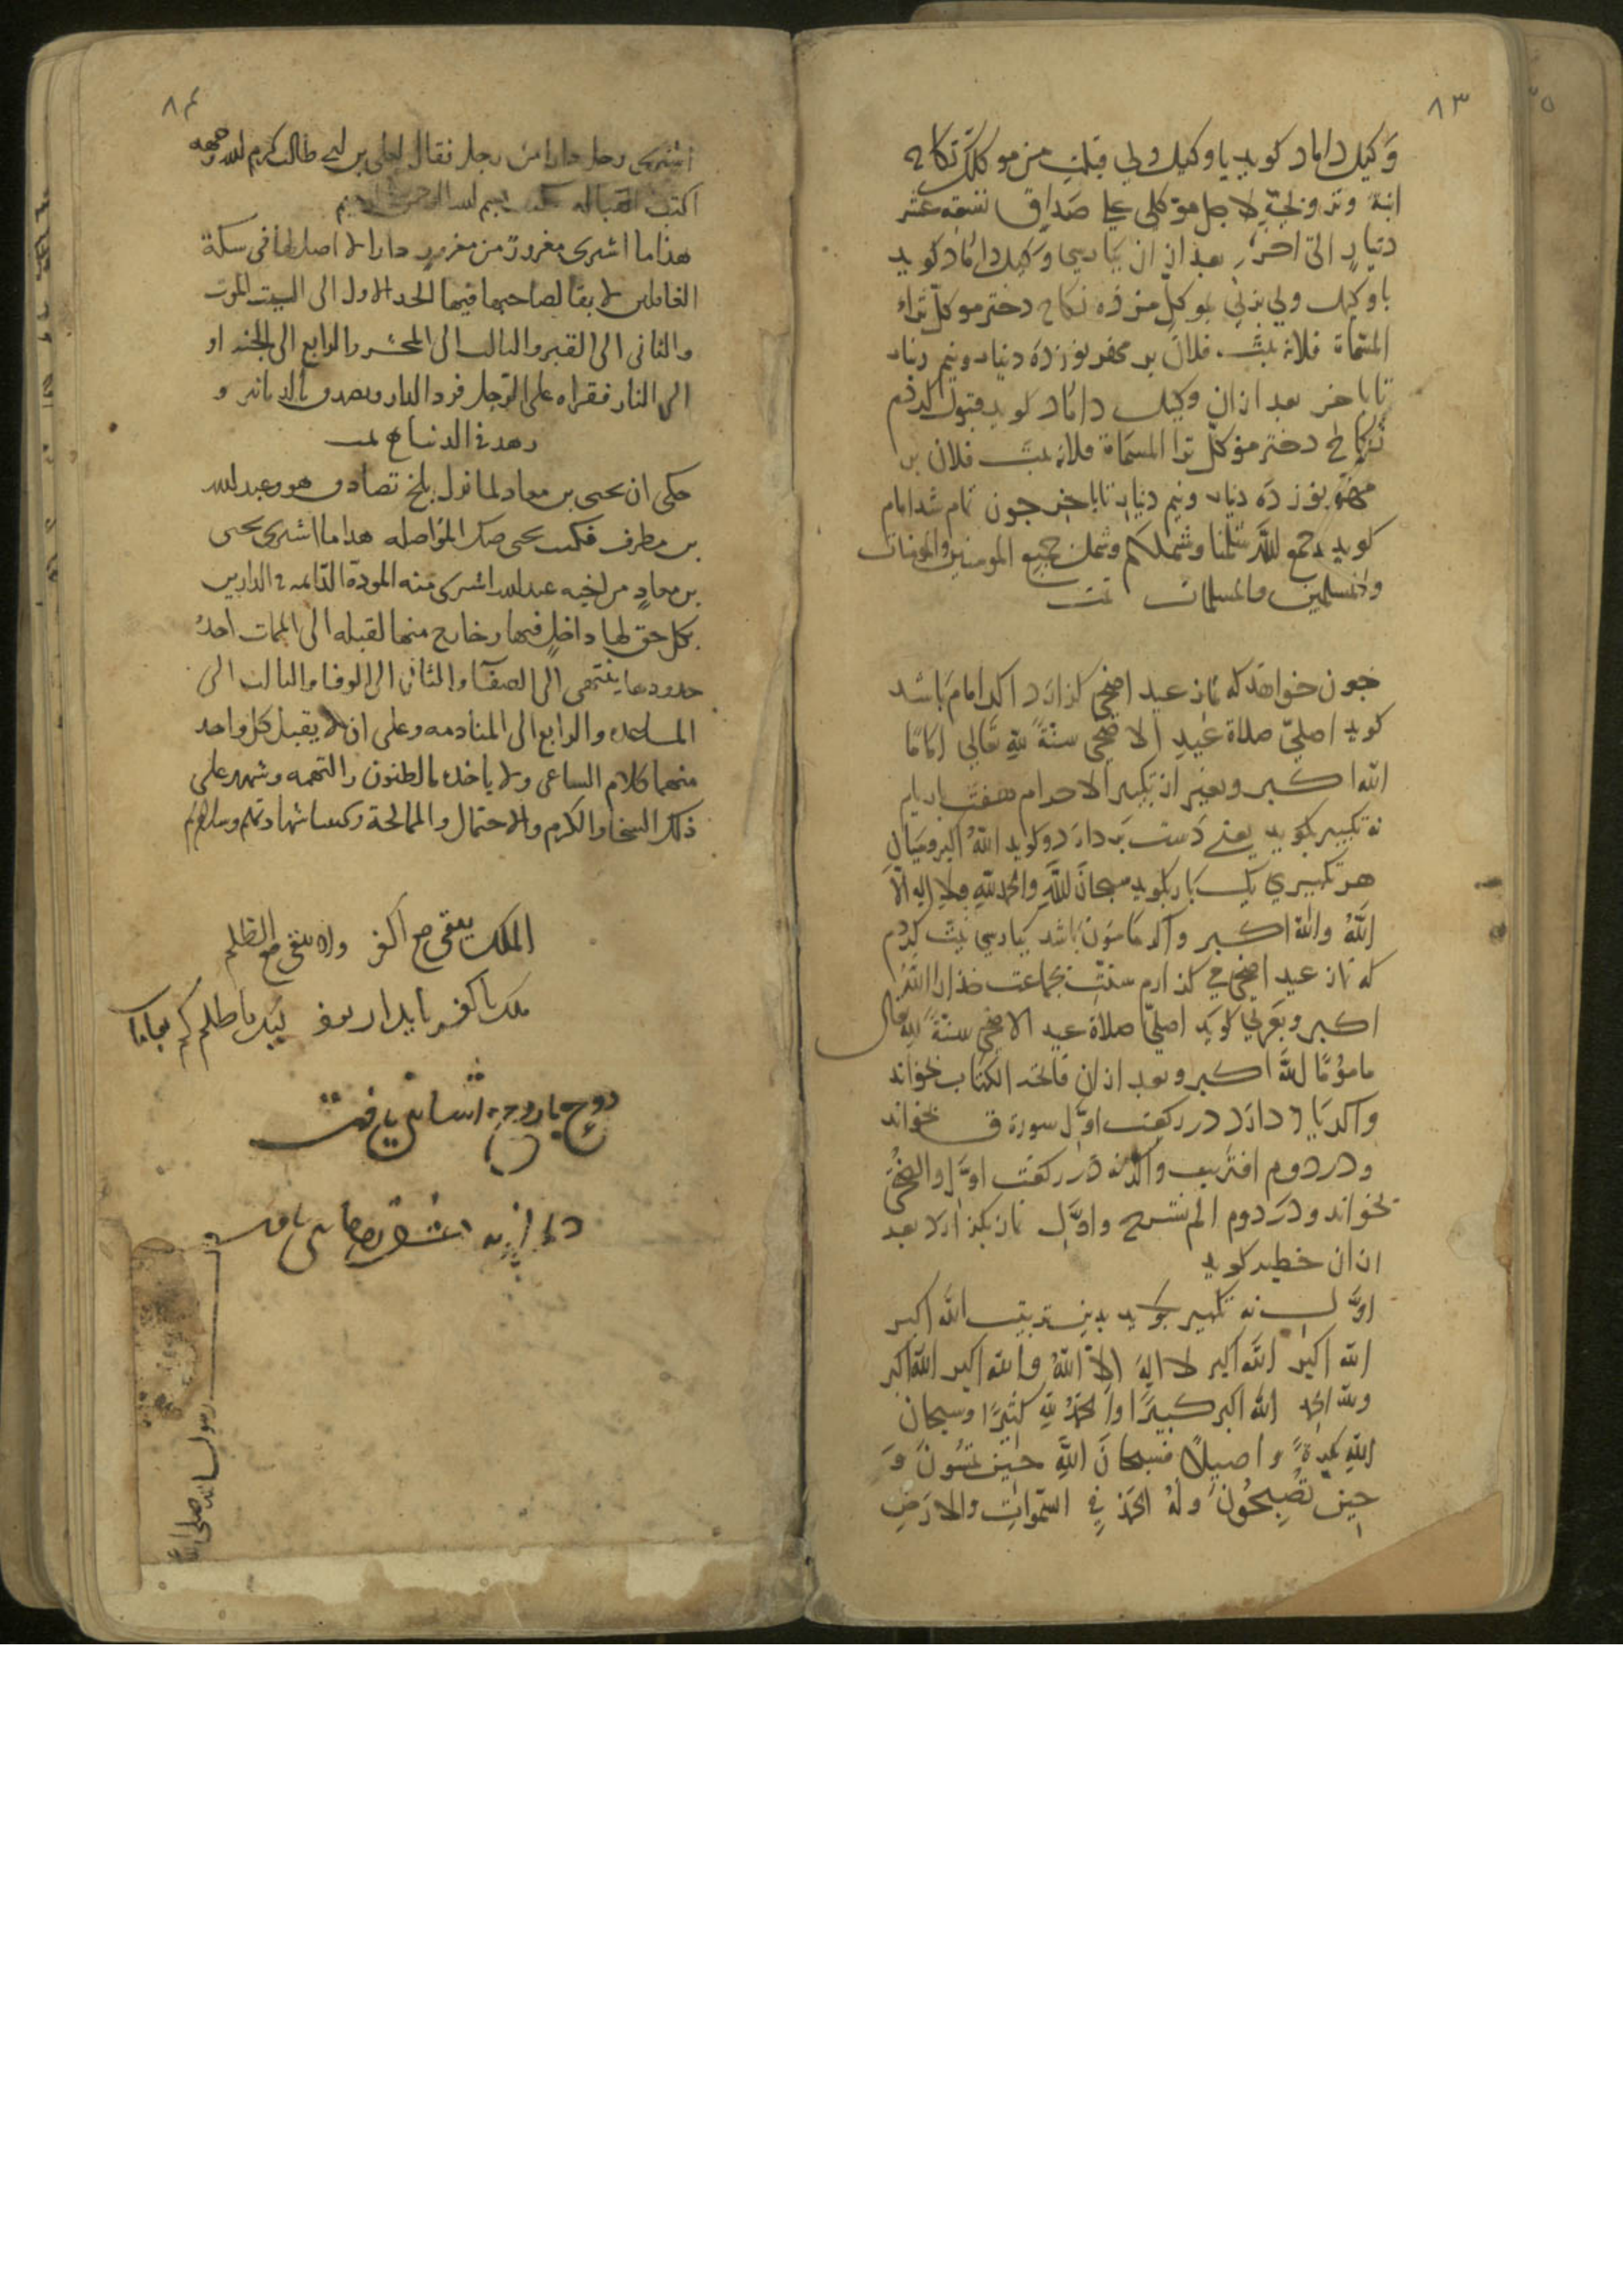 ٨٣
وكيل داماد كويد يا وكيل ولي قبلت من موكلك نكاح
ابنة وتزويجه لاجل موكلي على صداق تسعة عشر
دينار الى اخر، بعد ازان بپارسي وكيل داماد كويد
با وكيل ولي بزني بموكل من ده نكاح دختر موكل ترا
المسماة فلانه بنت فلان بر مهر نوزده دينار ونيم دينار
تا باخر بعد ازان وكيل داماد كويد قبول كردم
نكاح دختر موكل ترا المسماة فلانه بنت فلان بر
مهر نوزده دينار ونيم دينار تا باخر جون تمام شد امام
كويد جمع الله شملنا وشملكم وشمل جميع المومنين والمومنات
والمسلمين والمسلمات تمت
جون خواهد كه نماز عيد اضحى كزارد اكر امام باشد
كويد اصلي صلاة عيد الاضحى سنة لله تعالى اماما
الله اكبر وبغير از تكبير الاحرام هفت بار
تكبير بكويد يعنى دست بردارد وكويد الله اكبر وميان
هر تكبيري يك بار بكويد سبحان الله والحمد لله ولا اله الا
الله والله اكبر واكر ماموم باشد بپارسي نيت كردم
كه نماز عيد اضحى مي كذارم سنت بجماعت خدايرا الله
اكبر وبعربي كويد اصلي صلاة عيد الاضحى سنة لله تعالى
ماموما الله اكبر وبعد ازان فاتحة الكتاب بخواند
واكر ياد دارد در ركعت اول سورة ق بخواند
ودر دوم اقتربت واكر نه در ركعت اول والضحى
بخواند ودر دوم الم نشرح واول نماز بكزارد بعد
ازان خطبه كويد
اول نه تكبير بكويد بدين ترتيب الله اكبر
الله اكبر الله اكبر لا اله الا الله والله اكبر الله اكبر
ولله الحمد الله اكبر كبيرا والحمد لله كثيرا وسبحان
الله بكرة واصيلا فسبحان الله حين تمسون و
حين تصبحون وله الحمد في السموات والارض
٨٤
اشترى رجل دارا من رجل فقال لعلي بن ابي طالب كرم الله وجهه
اكتب القباله فكتب بسم الله الرحمن الرحيم
هذا ما اشترى مغرور من مغرور دارا لا اصل لها في سكة
الغافلين لا بقا لصاحبها فيها الحد الاول الى البيت الموت
والثاني الى القبر والثالث الى المحشر والرابع الى الجنه او
الى النار فقراه على الرجل فرد الدار وتصدق بالدنانير و
زهد في الدنيا تمت
حكى ان يحيى بن معاد لما نزل بلخ تصادق هو وعبد الله
بن مطرف فكتب يحيى صك المواصله هذا ما اشترى يحيى
بن معاد من اخيه عبد الله اشترى منه المودة القايمه في الدارين
بكل حق لها داخل فيها وخارج منها لقبله الى الممات احد
حدودها ينتهي الى الصفا والثاني الى الوفا والثالث الى
المساعده والرابع الى المنادمه وعلى ان لا يقبل كل واحد
منهما كلام الساعي ولا ياخذ بالظنون والتهمه وشهد على
ذلك السخا والكرم والاحتمال والممالحة وكتبا شهادتهم
الملك يبقى مع الكفر ولا يبقى مع الظلم
ملك با كفر پايدار بود
روح با روح اشنايى يافت
رسول الله صلى الله